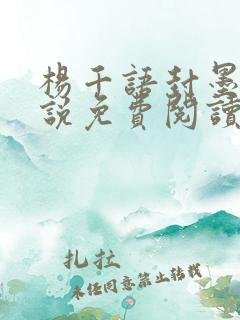 楊千語封墨
說免費閱讀
扎拉
未任同意禁止转载